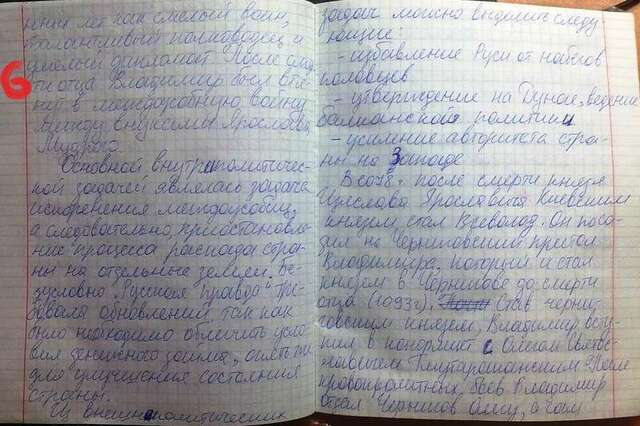 6
рении лет как смелый воин,
талантливый полководец и
умелый дипломат. После смер
ти отца Владимир
нет в междоусобную войну
между внуками Ярослава
Мудрого.
Основной внутриполитичес-
кой задачей являлась задача
искоренения междоусобиц,
а следовательно, приостановле-
ние процесса распада стра-
ны на отдельные земли. Бе-
зусловно "Русская правда" тре-
бовала обновлений так как
было необходимо облегчить усло-
вия денежного займа, опять же
для улучшения состояния
страны.
Из внешнеполитических
задач можно выделить следу
ющие:
- избавление Руси от набегов
половцев
- утверждение на Дунае, ведение
балканской политики
- усиление авторитета стра-
ны на Западе
В 1078г. после смерти князя
Изяслава Ярославича Киевским
князем стал Всеволод. Он поса-
дил на Черниговский престол
Владимира, который и стал
князем в Чернигове до смерти
отца (1093г.). Став черни-
говским князем, Владимир всту-
пил в конфликт с Олегом Свято-
славичем Тмутараканским. После
кровопролитных боев Владимир
отдал Чернигов Олегу, а сам